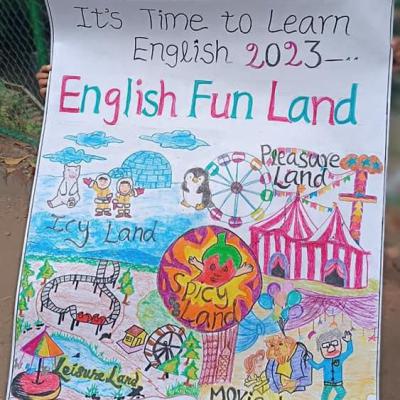 It's Time to Learn
English 2023-..
English Fun Land
Pleasure
Land
Icy Land
Spicy
Land
Leisure Land